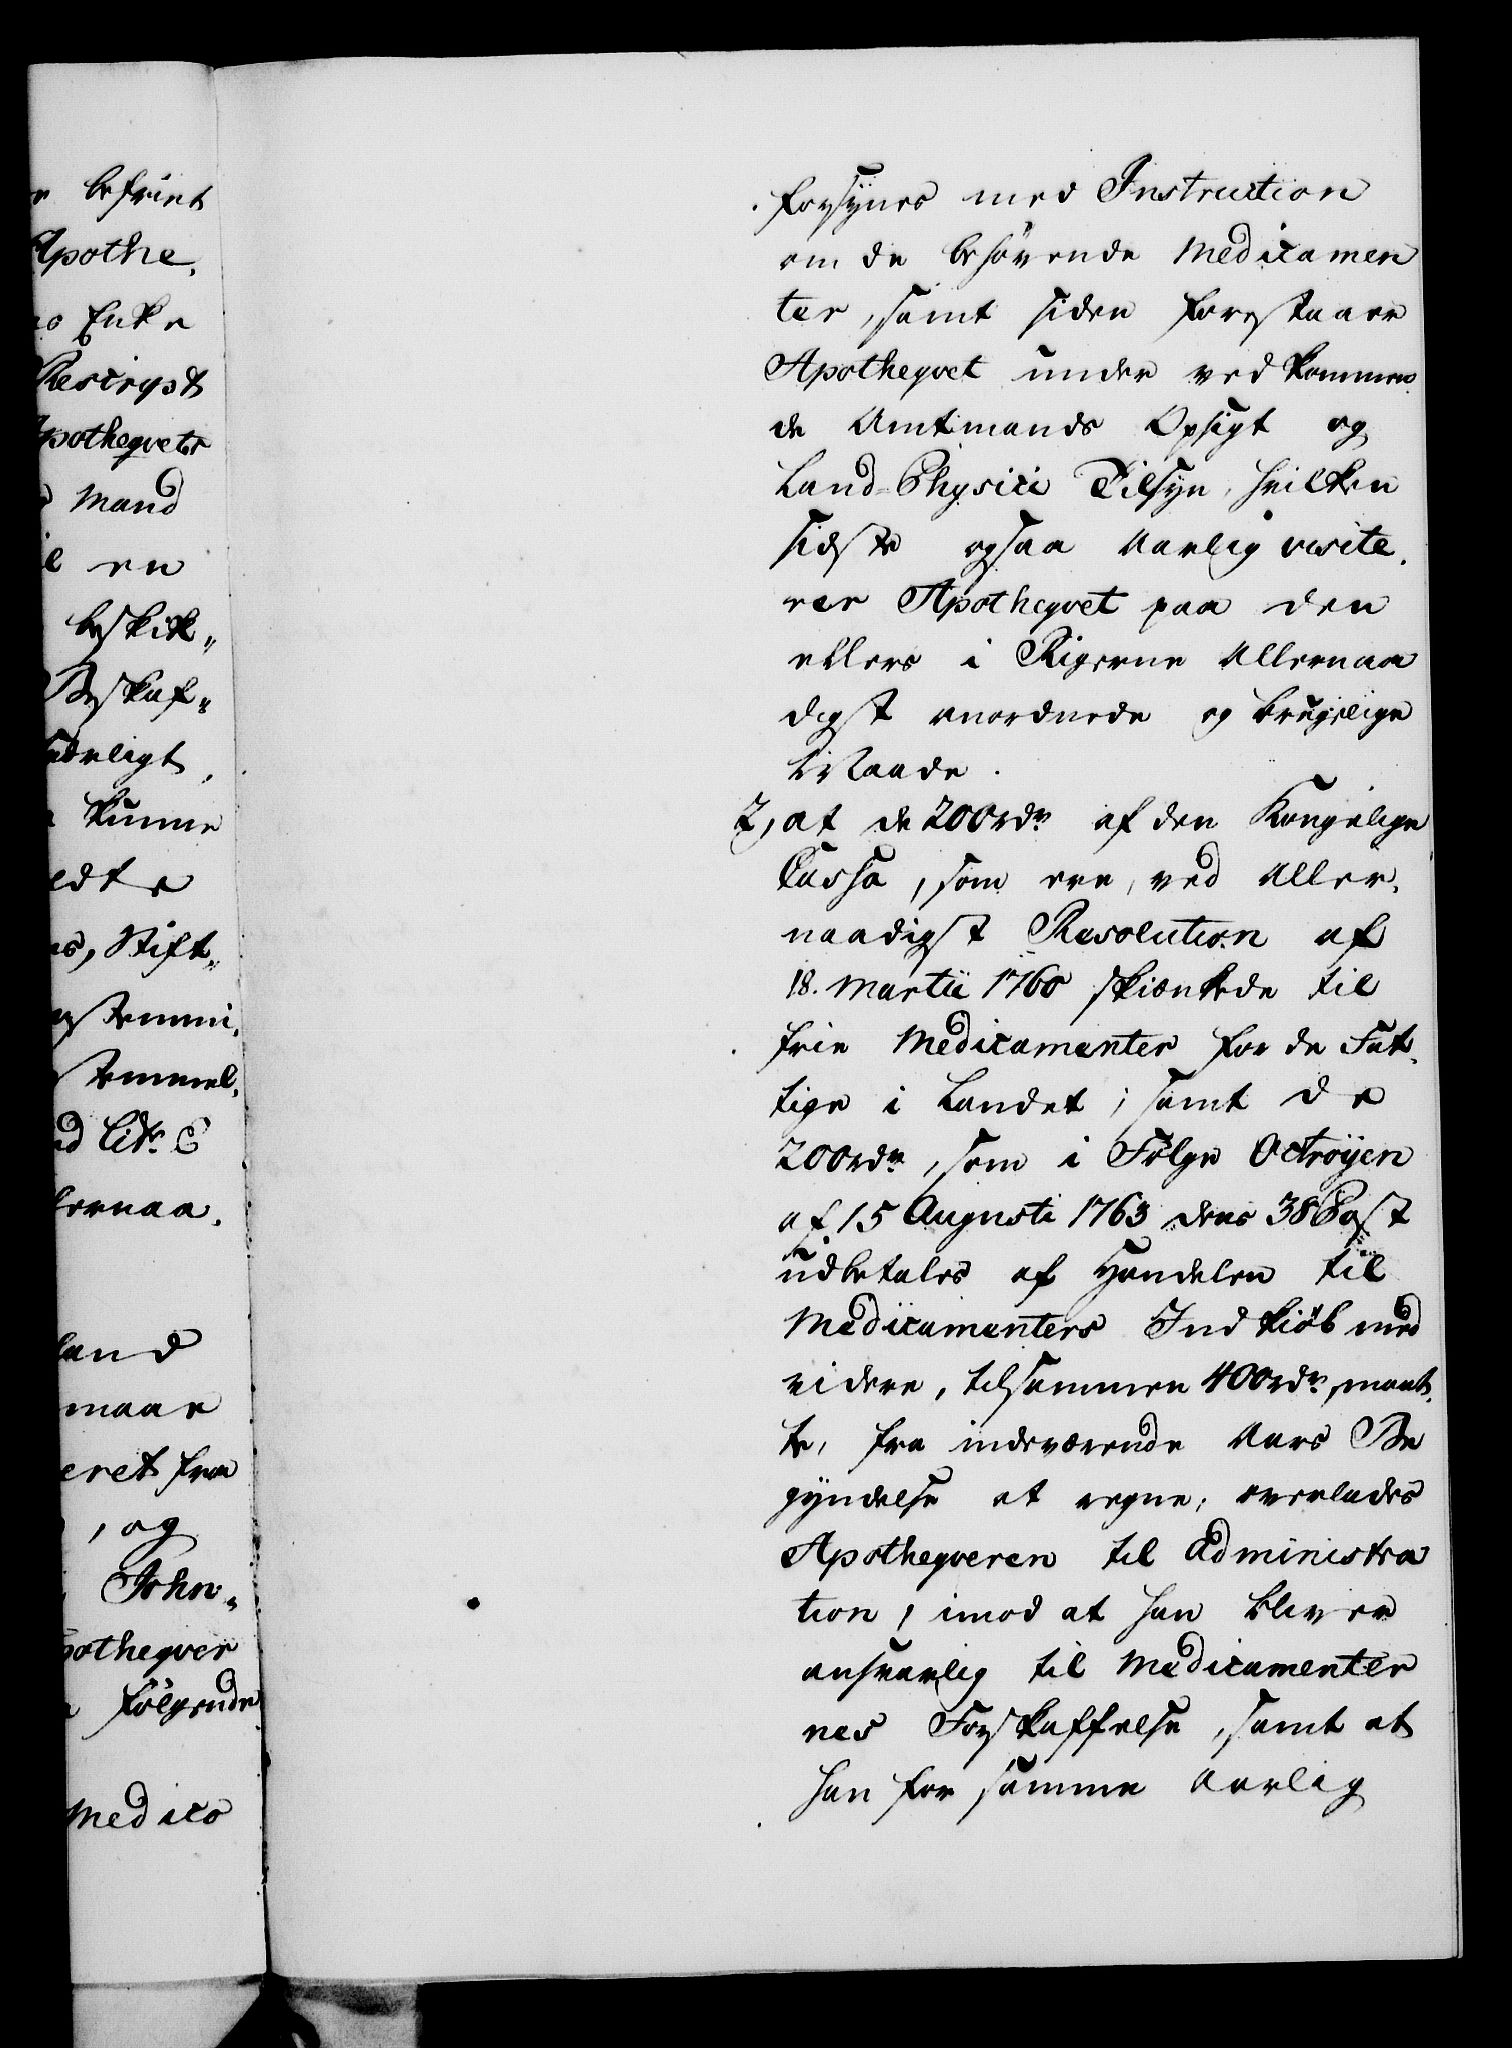 befriet
Apothe,
Enke
Rescript
Apothequets
Mand
en
beskik„
Beskaf„
kunne
Stift„
stemmi„
Lit. C
lernaa„
land
maae
eret fra
, og
John„
pothequer
følgende
Medico
forsynes med Instruction
om de behøvende Medicamen
ter, samt siden forestaaer
Apothequet under vedkommen
de Amtmands Opsigt og
Land-Physici Tilsyn, hvilken
sidste ogsaa aarlig visite„
rer Apothequet paa den
ellers i Rigerne allernaa
digst anordnede og brugelige
Maade.
2, at de 200rdr af den Kongelige
Cassa, som ere, ved aller„
naadigst Resolution af
18. Martii 1760 skiænkede til
frie Medicamenter for de Fat„
tige i Landet; samt de
200rdr, som i Følge Octroÿen
af 15 Augusti 1763 dens 38 Post
udbetales af Handelen til
Medicamenters Indkiøb med
videre, tilsammen 400rdr, maat„
te, fra indeværende Aars Be
gyndelse at regne, overlades
Apothequeren til Administra
tion, imod at han bliver
ansvarlig til Medicamenter
nes Forskaffelse, samt at
han for samme aarlig